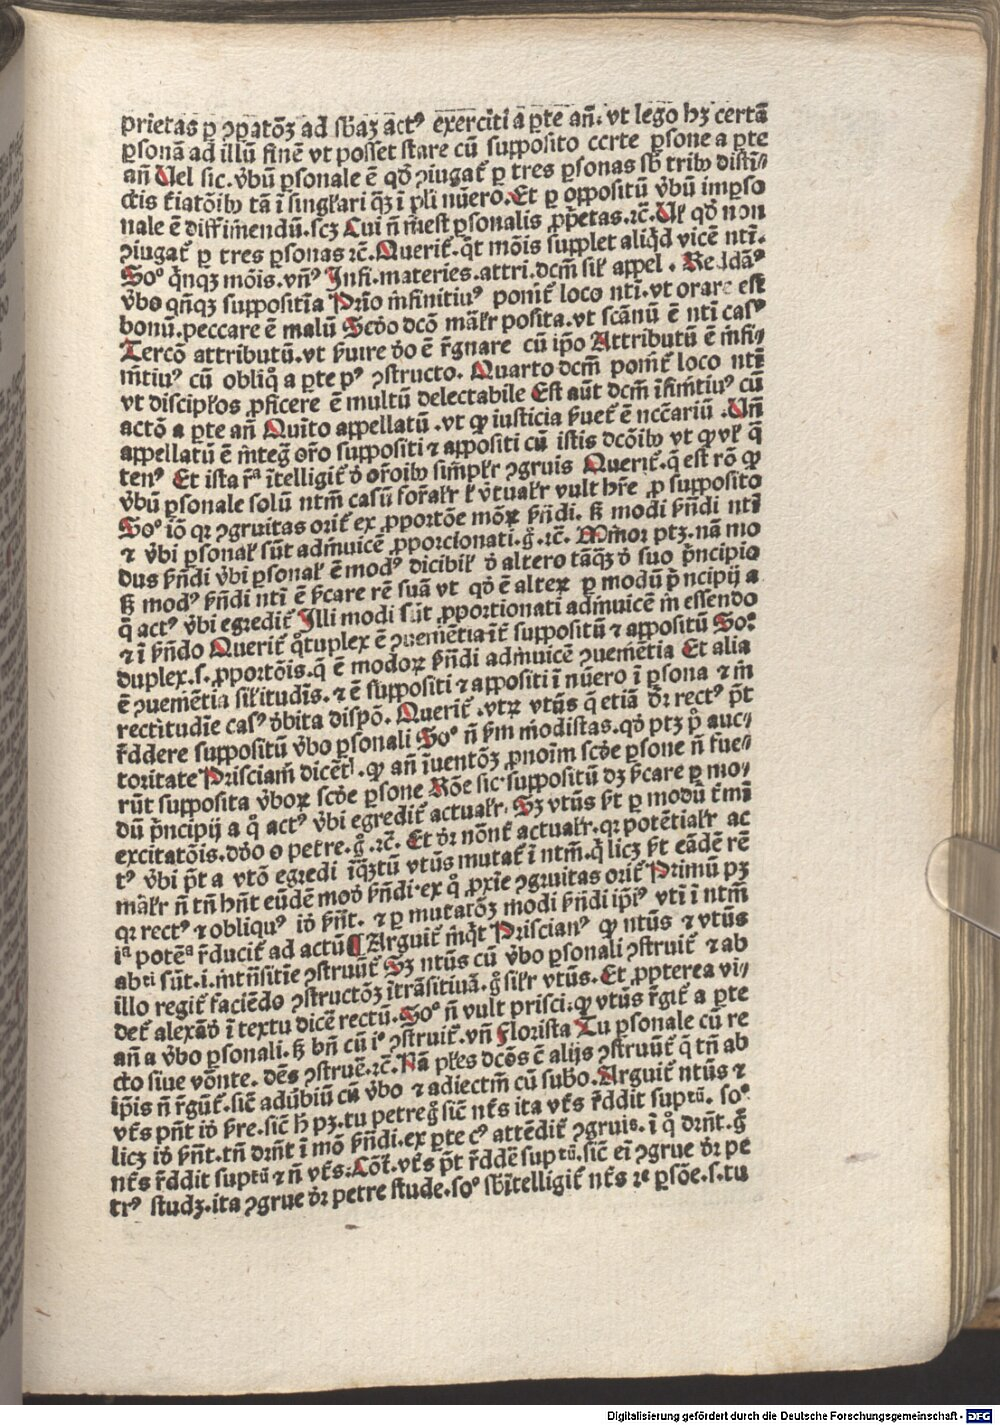 prietas ꝑ ꝯꝑatōꝫ ad sb̄aꝫ actꝰ exerciti a ꝑte añ. vt lego hꝫ certā
ꝑsonā ad illū finē vt posset stare cū supposito certe ꝑsone a ꝑte
añ Uel sic. v̄bū ꝑsonale ē qd̄ ꝯiugat᷑ ꝑ tres ꝑsonas sb̄ tribꝰ disti-
ctis t᷑iatōibꝰ tā ī singl̄ari qꝫ ī pl̄i nūero. Et ꝑ oppositū v̄bū imꝑso
nale ē diffīniendū. scꝫ Cui ñ īest ꝑsonalis ꝓp̄etas. ⁊c̄. Ul̄ qd̄ non
ꝯiugat᷑ ꝑ tres ꝑsonas ⁊c̄. Querit᷑. q̄t mōis supplet aliq̄d vicē ntī.
Soᵒ q̄nqꝫ mōis. vñꝰ Infi. materies. attri. dcm̄ sil̄ appel. Reddāꝰ
v̄bo qn̄qꝫ suppositīa Prīo īnfinitiuꝰ ponit᷑ loco ntī. vt orare est
bonū. peccare ē malū Scd̄o dcō māl̄r posita. vt scānū ē ntī casꝰ
Tercō attributū. vt ẜuire dō ē r̄gnare cū ip̄o Attributū ē īnfi-
nītiuꝰ cū obliq̄ a ꝑte pꝰ ꝯstructo. Quarto dcm̄ ponit᷑ loco ntī
vt discipl̄os ꝓficere ē multū delectabile Est aūt dcm̄ īfinītiuꝰ cū
actō a ꝑte añ Quīto appellatū. vt qꝙ iusticia ẜuet᷑ ē ncc̄ariū. Uñ
appellatū ē īnteg̅ or̄o suppositi ⁊ appositi cū istis dcōibꝰ vt qꝙ vl̄ q̄
tenꝰ Et ista rᵃ ītelligit᷑ d̄ or̄oibꝰ simpl̄r ꝯgruis Querit᷑. q̄ est rō qꝙ
v̄bū ꝑsonale solū ntm̄ casū for̄al̄r l̄ v̄tual̄r vult hr̄e ꝓ supposito
Soᵒ iō qꝛ ꝯgruitas orit᷑ ex ꝓportōe mōꝝ ẜn̄di. ß modi ẜn̄di ntī
⁊ v̄bi ꝑsonal̄ sūt adīnuicē ꝓporcionati. g̊. ⁊c̄. Minor ptꝫ. nā mo
dus ẜn̄di v̄bi ꝑsonal̄ ē modꝰ dicibil̄ d̄ altero tāqꝫ d̄ suo p̄ncipio
ß modꝰ ẜn̄di ntī ē ẜcare rē suā vt qd̄ ē alteꝝ ꝑ modū p̄ncipij a
q̊ actꝰ v̄bi egredit᷑ Illi modi sūt ꝓportionati adīnuicē in essendo
⁊ ī ẜn̄do Querit᷑ q̊tuplex ē ꝯueniētia īt᷑ suppositū ⁊ appositū Soᵒ
duplex. s. ꝓportōis. q̄ ē modoꝝ ẜn̄di adīnuicē ꝯueniētia Et alia
ē ꝯueniētia sil̄itudīs. ⁊ ē suppositi ⁊ appositi ī nūero ī ꝑsona ⁊ ī
rectitudīe casꝰ v̄bita dispō. Querit᷑. vtꝝ vtūs q̄ etiā dr̄ rectꝰ p̄t
r̄ddere suppositū v̄bo ꝑsonali Soᵒ ñ ẜm modistas. qd̄ ptꝫ p̊ auc-
toritate Prisciani dicēt᷑. qꝙ añ īuentōꝫ ꝓnoīm scd̄e ꝑsone ñ fue-
rūt supposita v̄boꝝ scd̄e ꝑsone Rōe sic suppositū dꝫ ẜcare ꝑ mo-
dū p̄ncipij a q̊ actꝰ v̄bi egredit᷑ actual̄r. Sꝫ vtūs ẜt ꝑ modū t᷑mī
excitatōis. dd̄o o petre. g̊. ⁊c̄. Et dr̄ nōnt᷑ actual̄r. qꝛ potētial̄r ac
tꝰ v̄bi p̄t a vtō egredi īqꝫtū vtūs mutat᷑ ī ntm̄. q̊ licꝫ ẜt eādē rē
māl̄r ñ tñ hn̄t eūdē mod̄ ẜn̄di. ex q̊ ꝓxīe ꝯgruitas orit᷑ Primū pꝫ
qꝛ rectꝰ ⁊ obliquꝰ id̄ ẜn̄t. ⁊ ꝑ mutatōꝫ modi ẜn̄di ip̄iꝰ vtī ī ntm̄
iᵃ potēᵃ r̄ducit᷑ ad actū ¶ Arguit᷑ īnq̊t Priscianꝰ qꝙ ntūs ⁊ vtūs
abtī sūt. i. īntn̄sitīe ꝯstruūt᷑ Sꝫ ntūs cū v̄bo ꝑsonali ꝯstruit᷑ ⁊ ab
illo regit᷑ faciēdo ꝯstructōꝫ ītrāsitiuā. g̊ sil̄r vtūs. Et ꝓpterea vi-
det᷑ alexād̄ ī textu dicē rectū. Soᵒ ñ vult prisci. qꝙ vtūs r̄git᷑ a ꝑte
añ a v̄bo ꝑsonali. ß bn̄ cū iᵒ ꝯstruit᷑. vñ Florista Tu ꝑsonale cū re
cto siue vōnte. dēs ꝯstruē. ⁊c̄. Nā pl̄es dcōs ē alijs ꝯstruūt᷑ q̄ tñ ab
ip̄is ñ r̄gūt᷑. sic̄ adūbiū cū v̄bo ⁊ adiectm̄ cū subō. Arguit᷑ ntūs ⁊
vtꝭs pn̄t id̄ ẜre. sic̄ h̄ pꝫ. tu petre g̊ sic̄ ntꝭs ita vtꝭs r̄ddit suptū. soᵒ
licꝫ id̄ ẜn̄t. tñ drn̄t ī mō ẜn̄di. ex ꝑte cꝰ attēdit᷑ ꝯgruis. ī q̊ drn̄t. g̊
ntꝭs r̄ddit suptū ⁊ ñ vtꝭs. Cōt᷑. vtꝭs p̄t r̄ddē suptū. sic̄ eī ꝯgrue dr̄ pe
trꝰ studꝫ. ita ꝯgrue dr̄ petre stude. soᵒ sb̄ītelligit᷑ ntꝭs ⁊e ꝑsōe. s. tu
Digitalisierung gefördert durch die Deutsche Forschungsgemeinschaft - DFG